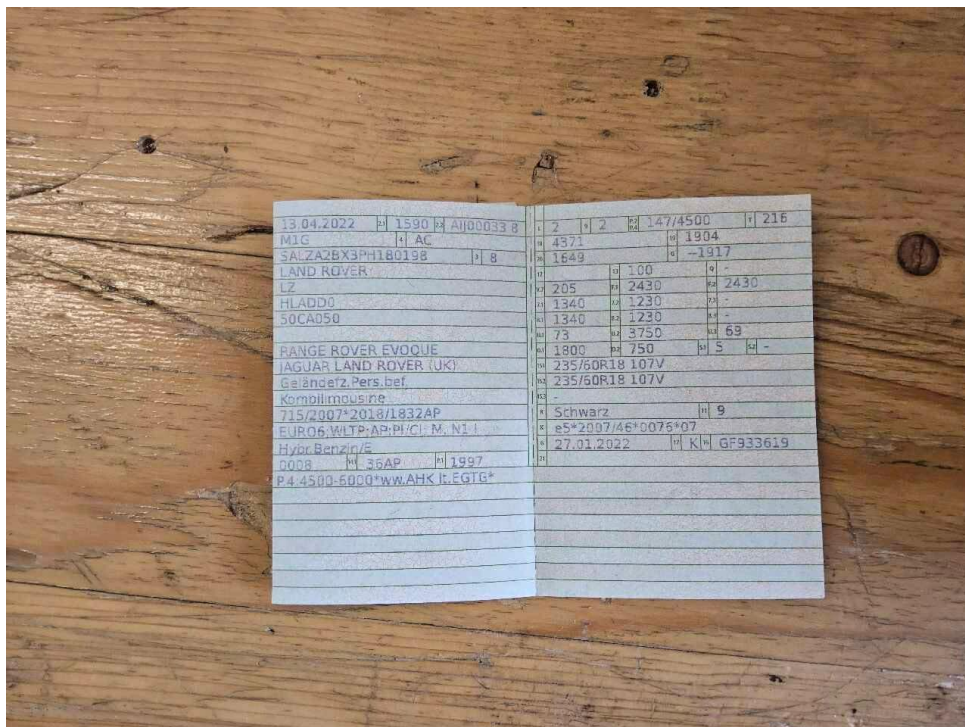 13.04.2022 2.1 1590 2.2 AIJ00033 8
M1G 4 AC
SALZA2BX3PH180198 3 8
LAND ROVER
LZ
HLADD0
50CA050
RANGE ROVER EVOQUE
JAGUAR LAND ROVER (UK)
Geländefz.Pers.bef.
Kombilimousine
715/2007*2018/1832AP
EURO6;WLTP;AP;PI/CI; M, N1 I
Hybr.Benzin/E
0008 36AP 1997
P.4:4500-6000*ww.AHK lt.EGTG*
2 2 147/4500 216
4371 1904
1649 -1917
100 -
205 2430 2430
1340 1230 -
1340 1230 -
73 3750 69
1800 750 5 -
235/60R18 107V
235/60R18 107V
-
Schwarz 11 9
e5*2007/46*0076*07
27.01.2022 17 K 16 GF933619
21